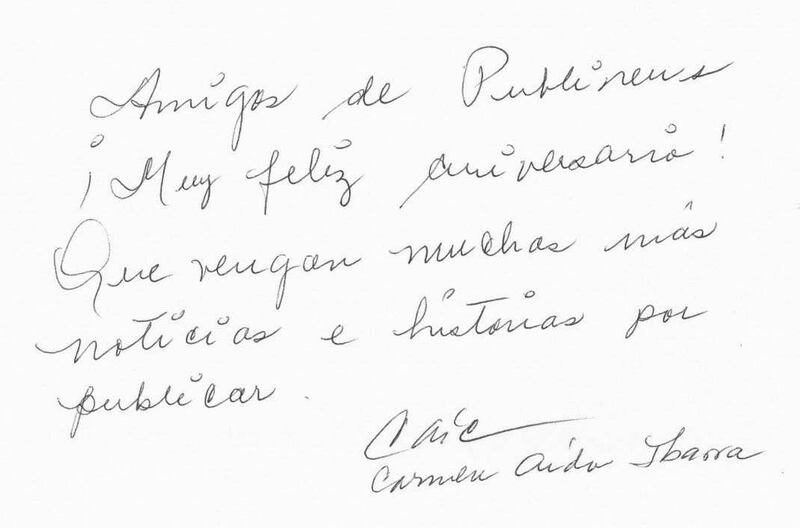 Amigos de Publinews
¡Muy feliz aniversario!
Que vengan muchas más
noticias e historias por
publicar.
Carmen Aida Ibarra